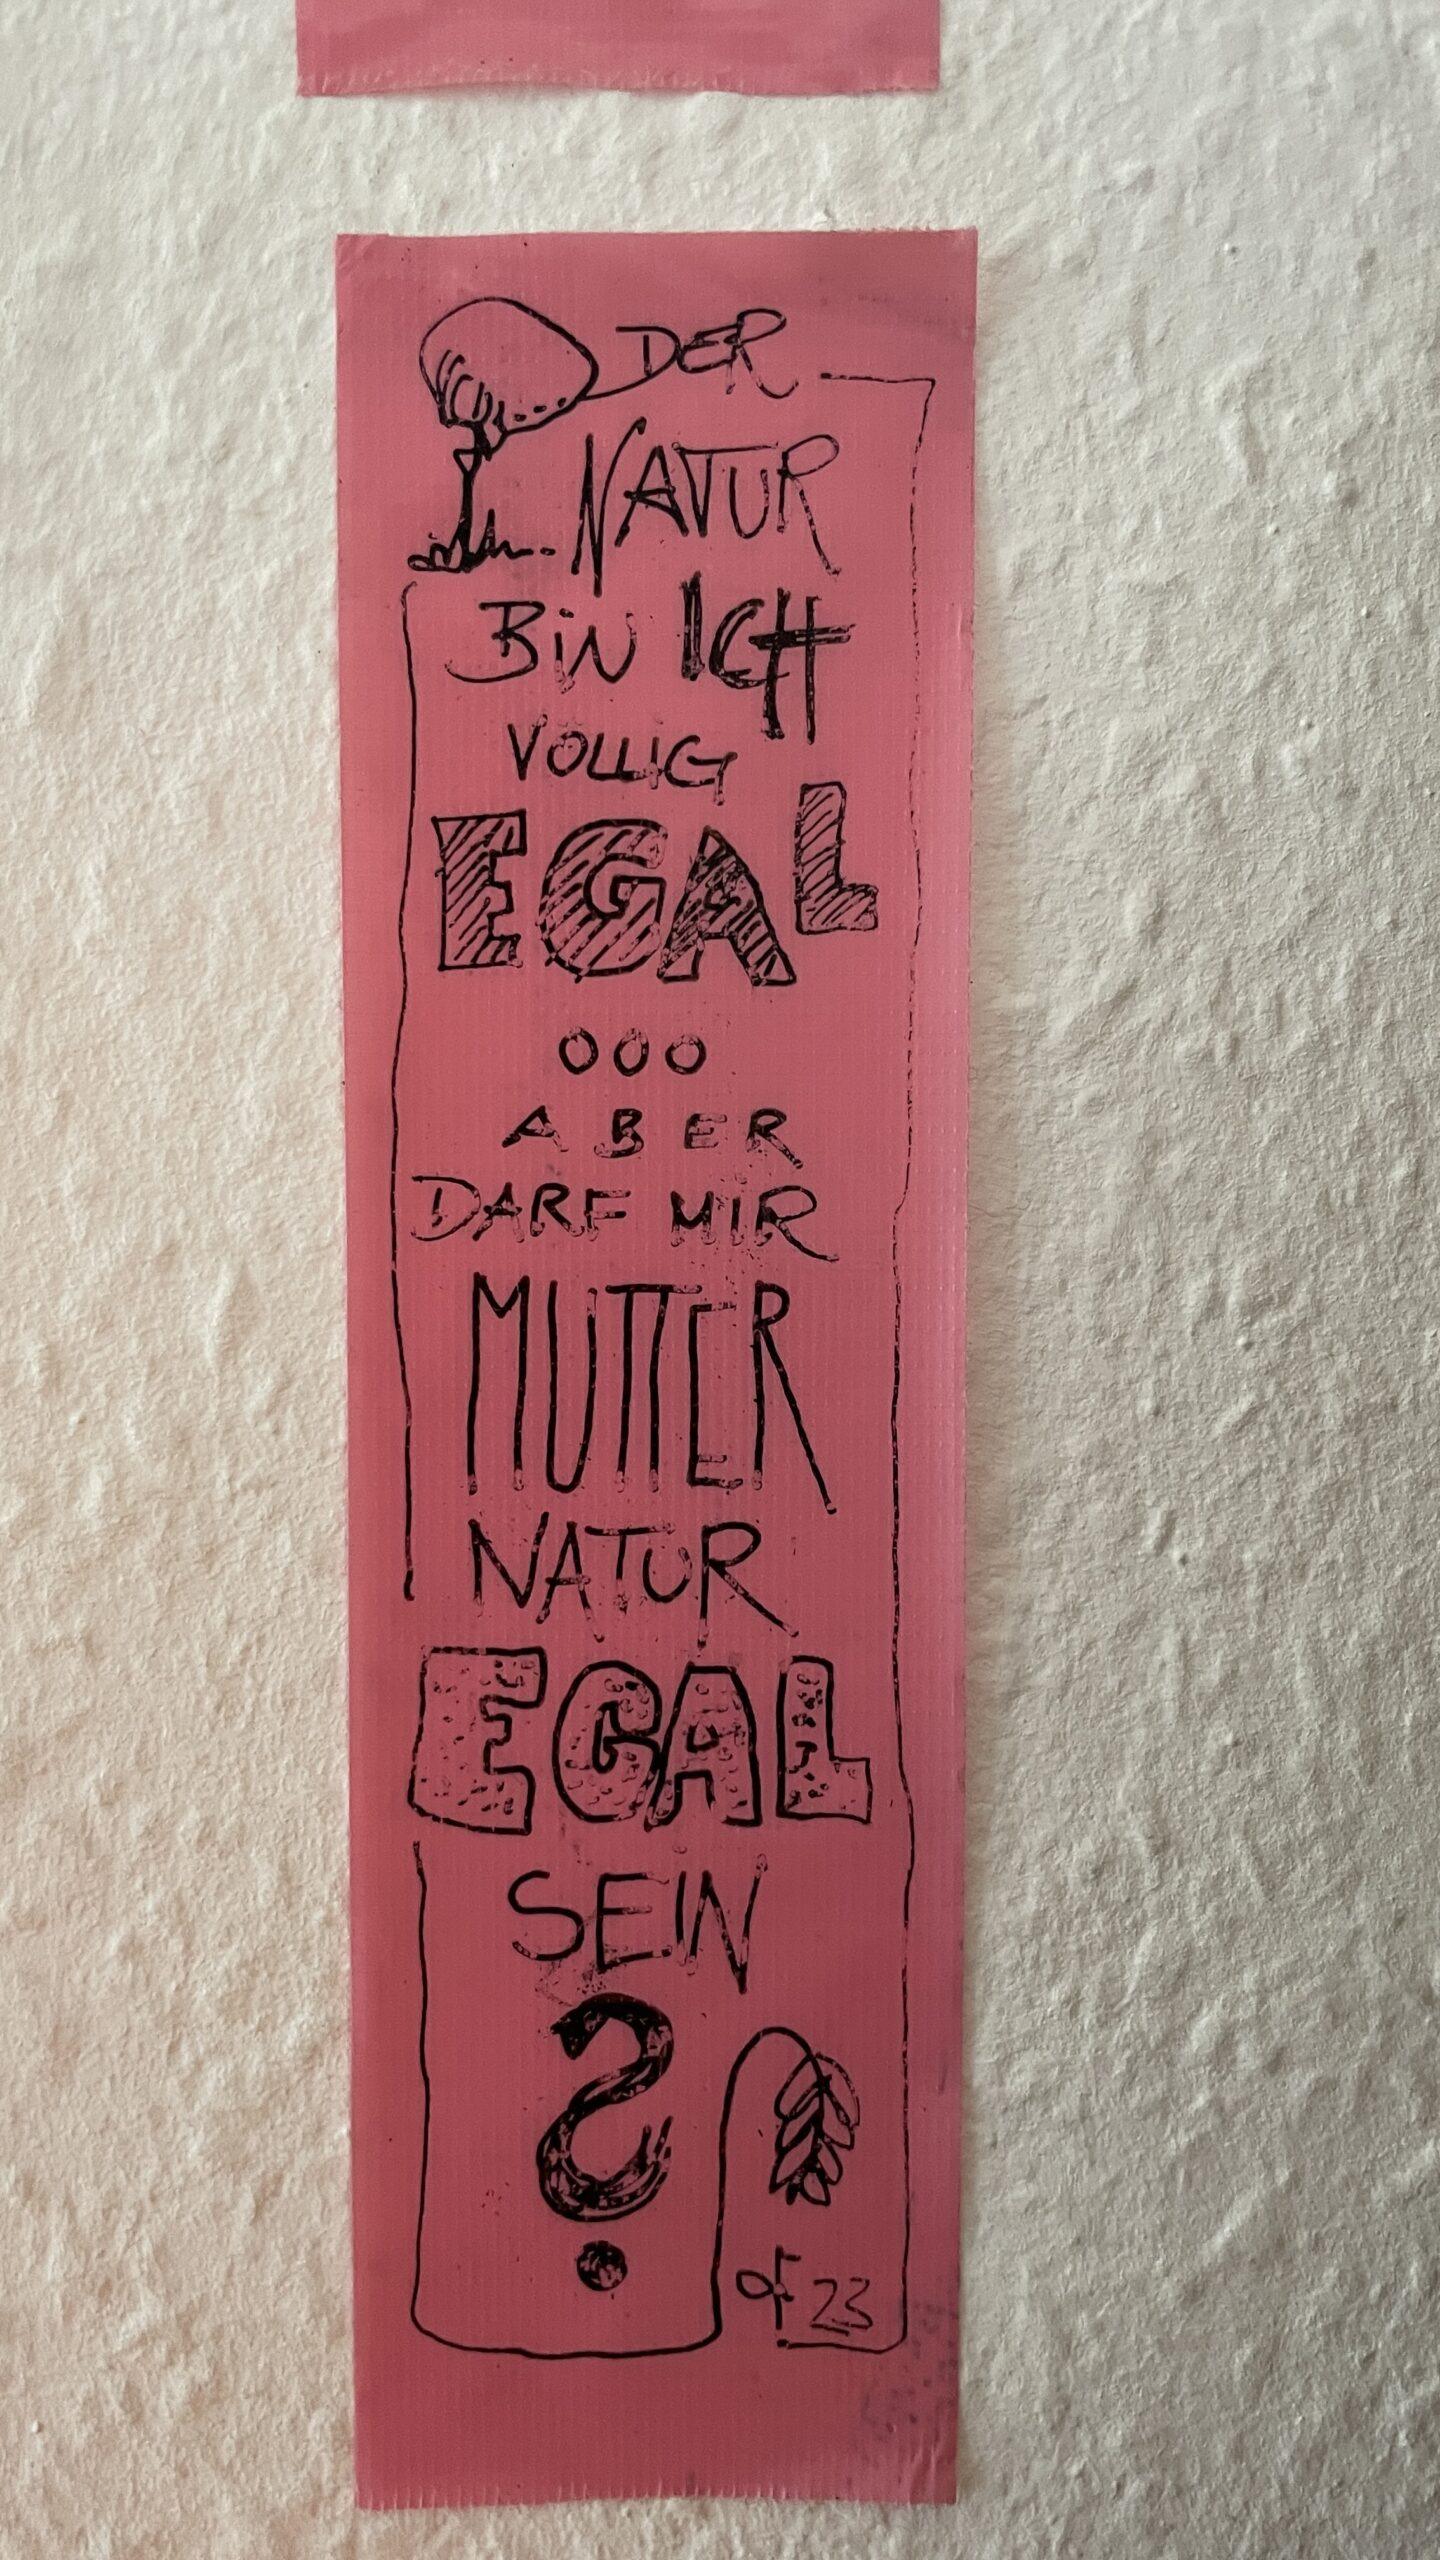 DER
NATUR
BIN ICH
VÖLLIG
EGAL
ooo
ABER
DARF MIR
MUTTER
NATUR
EGAL
SEIN
?
23